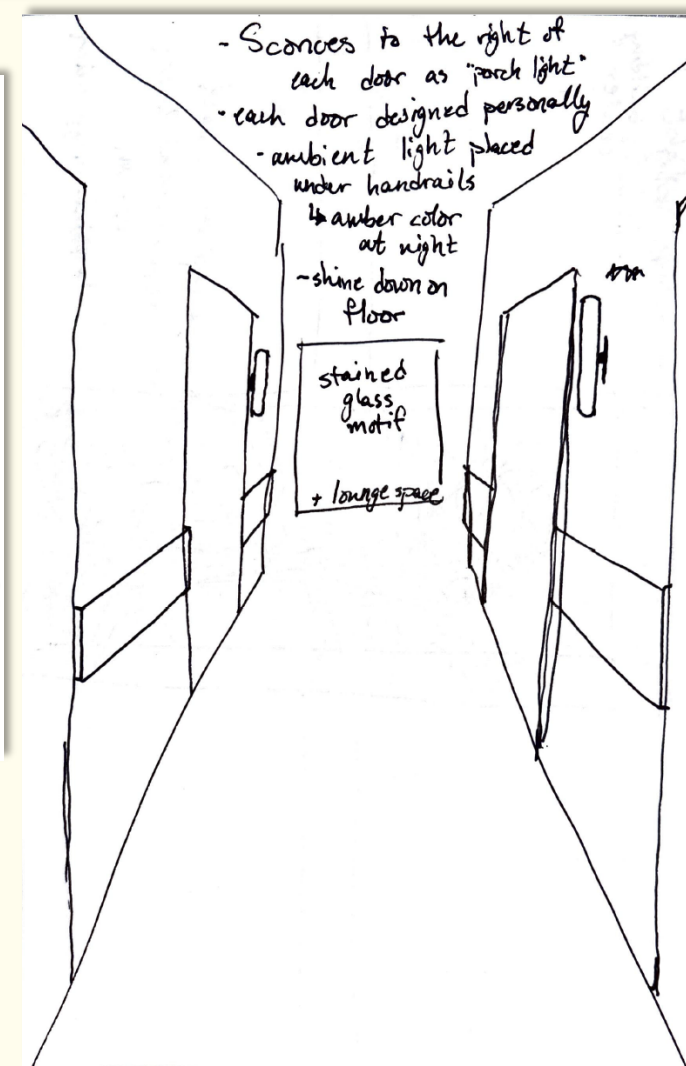 - Sconces to the right of
each door as "porch light"
- each door designed personally
- ambient light placed
under handrails
↳ amber color
at night
- shine down on
floor
stained
glass
motif
+ lounge space